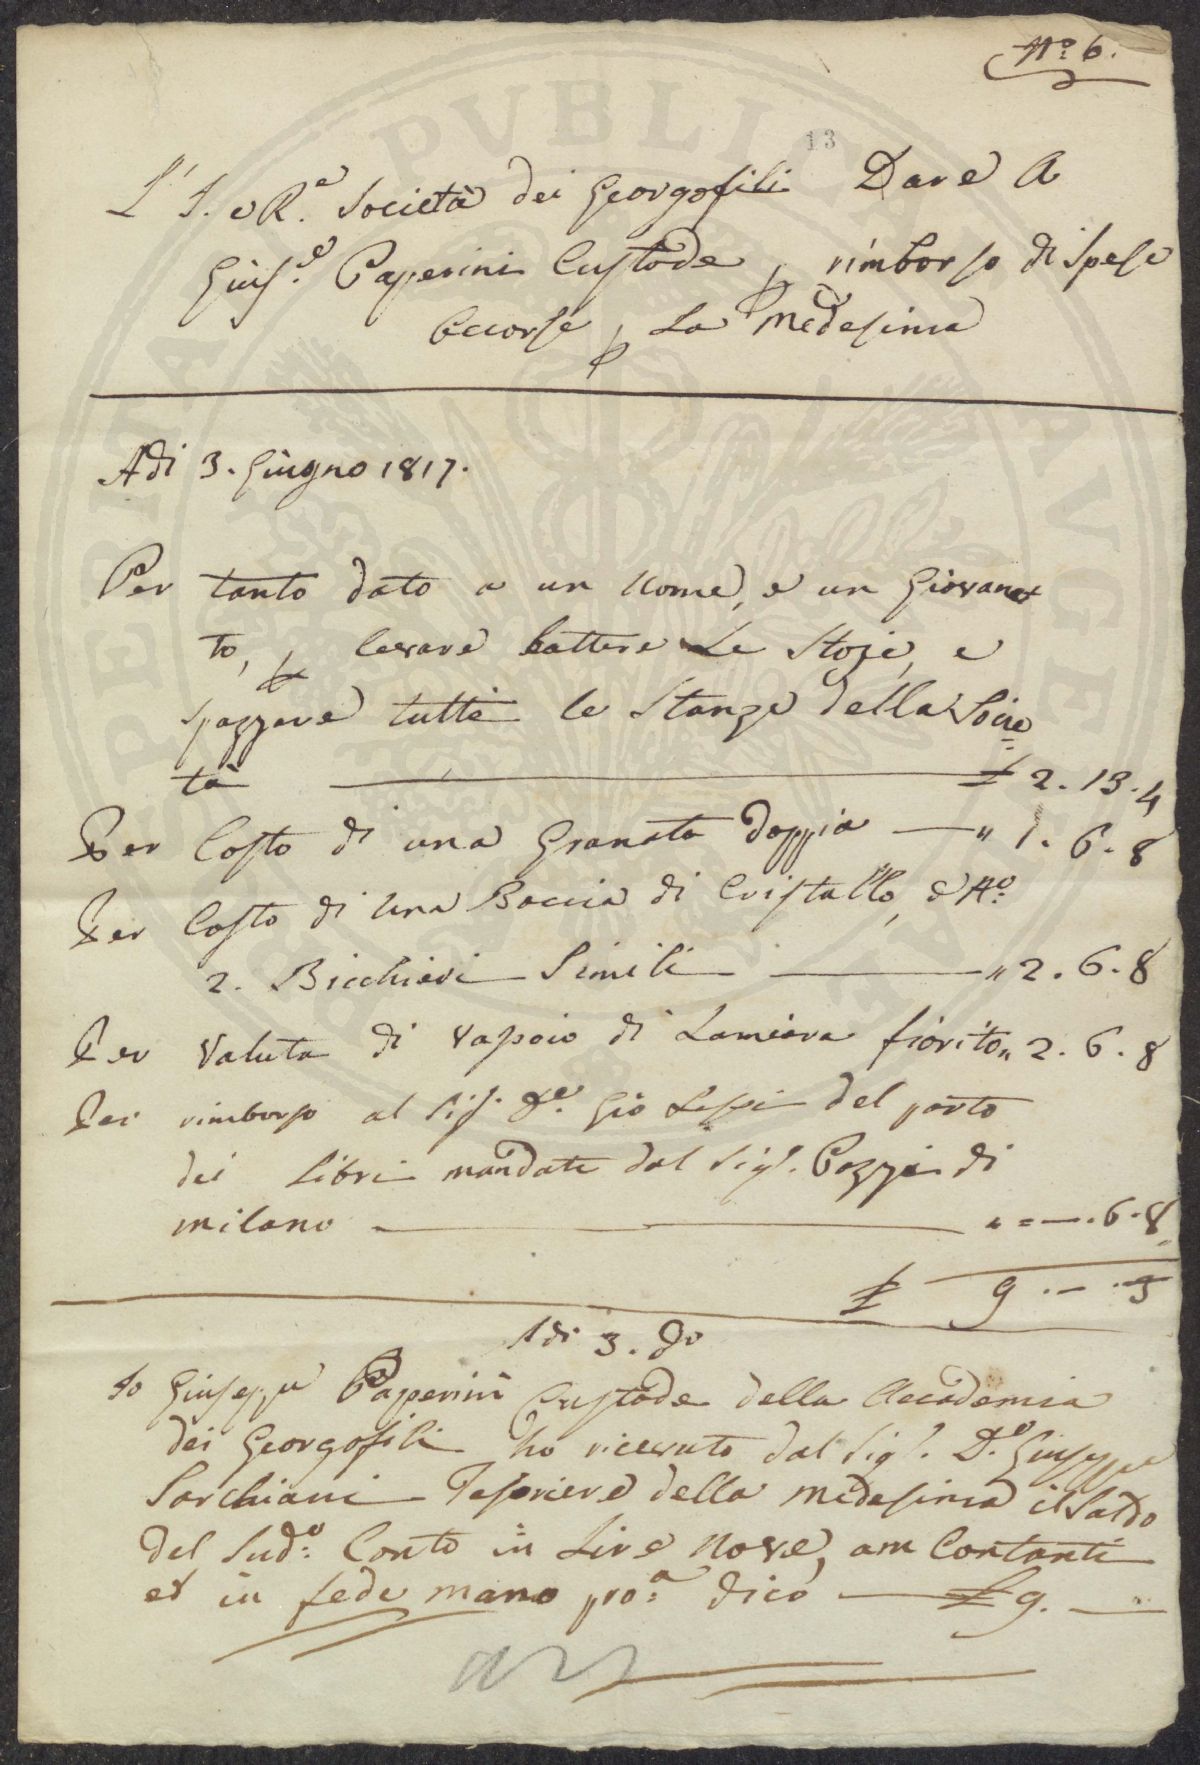 N.º 6.
13
L'I. e R.e Società dei Georgofili Dare A
Gius.e Paperini Custode p rimborso di Spese
Occorse p La Medesima
Adi 3. Giugno 1817.
Per tanto dato a un Uome, e un Giovanet
to, p levare battere Le Stoje, e
spazzare tutte le Stanze della Socie=
tà £ 2. 13. 4
Per Costo di una Granata doppia " 1. 6. 8
Per Costo di Una Boccia di Cristallo, e N.º
2. Bicchieri Simili " 2. 6. 8
Per Valuta di Vassoio di Lamiera fiorito " 2. 6. 8
Per rimborso al Sig. D.e Gio Lessi del porto
dei Libri mandati dal Sig.r Pozzi di
Milano " = —. 6. 8
£ 9. —. —
Adi 3. do
Io Giuseppe Paperini Custode della Accademia
dei Georgofili ho ricevuto dal Sig.r D.e Giuseppe
Sarchiani Tesoriere della Medesima il Saldo
del Sud.o Conto in Lire Nove, am Contanti
ed in fede mano pro.a dico £ 9. —